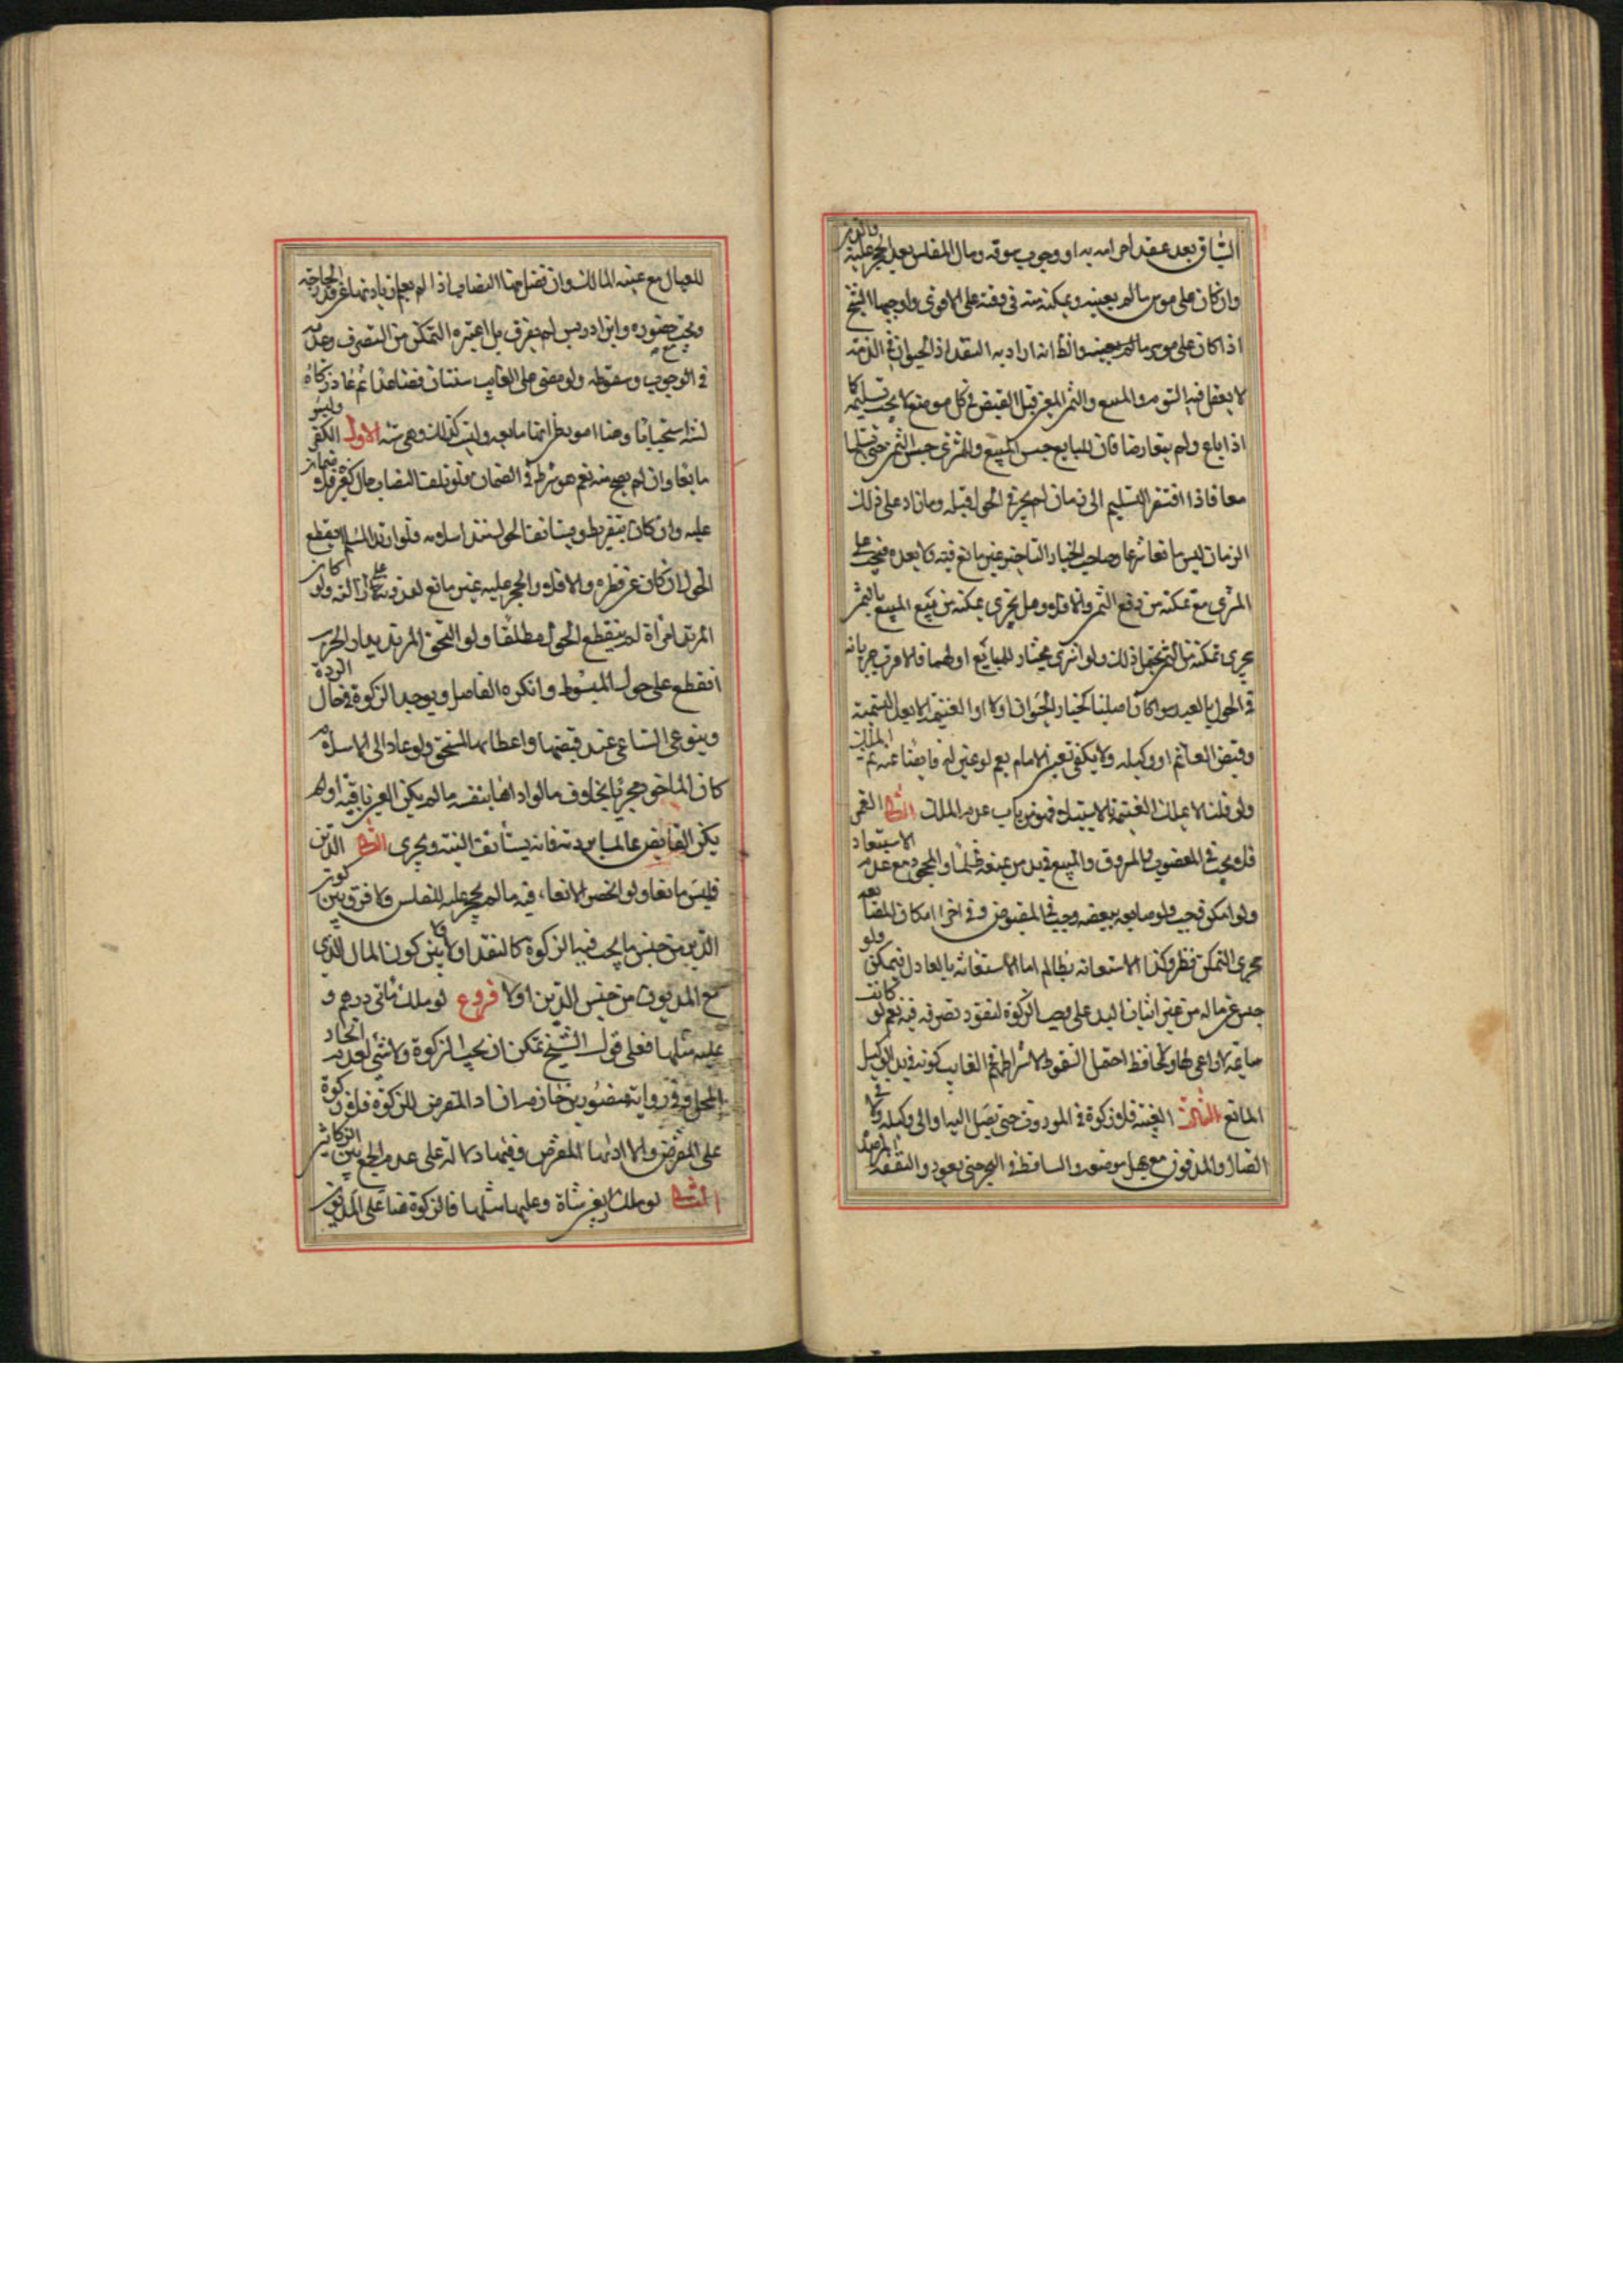 السياق بعد عقد احرامه به او وجوب سوقه ومال المفلس بعد الحجر عليه والدين
وان كان على موسر ما لم يعينه ويمكنه منه في وقته على الاقوى واوجبها الشيخ
اذا كان على موسر ما لم يعينه والظ انه اراد به النقد اذ الحيوان في الذمة
لا يعقل فيه السوم والمبيع والثمن المعين قبل القبض في كل موضع لا يجب تسليمه كما
اذا باع ولم يتقارضا فان للبايع حبس المبيع وللمشتري حبس الثمن حتى يتسلما
معا فاذا افتقر التسليم الى زمان لم يجر في الحول قبله وما زاد على ذلك
الزمان ليس مانعا شرعا وصاحب الخيار التأخير غير مانع فيه ولا بعده فيجب على
المشتري مع تمكنه من دفع الثمن والا فلا وهل يجزي تمكنه من بيع المبيع بالثمن
مجرى تمكنه من الثمن يحتمل ذلك ولو اشترى بخيار للبايع او لهما فالاقرب جريانه
في الحول بالعقد سواء كان اصليا كخيار الحيوان اولا والغنيمة الا بعد القسمة
وقبض الغانم او وكيله ولا يكفي تعيين الامام نعم لو عين له قابضا عنه ثم المالك
ولو قلنا لا يملك الغنيمة الا فهو من باب عدم الملك القهر
فلا يجب في المغصوب والمسروق والمبيع في يد من يمنعه ظلما والمجحود مع عدم الاستعاد
ولو امكن فيجب ولو صانعه ببعضه وجب في المقبوض وفي اجراء امكان المصانعه
مجرى التمكن نظر وكذا الاستعانة بظالم اما الاستعانة بالعادل فتمكن ولو
حبس عن ماله من غير اثبات اليد عليه يجب الزكوة لنفوذ تصرفه فيه نعم لو كانت
سايمة لا راعي لها ولا حافظ احتمل السقوط لاشتراطهم في الغايب كونه في يد الوكيل
المانع الثالث الغيبة فلا زكوة في الموروث حتى يصل اليه او الى وكيله ولا في
الضال والمدفون مع جهل موضعه والساقط في البحر حتى يعود والنفقة المرصدة
للعيال مع غيبة المالك وان فضل منها النصاب اذا لم يعلم زيادتها عن قدر الحاجة
وتجب مع حضوره وابن ادريس لم يفرق بل اعتبر التمكن من التصرف وعدمه
في الوجوب وسقوطه ولو مضى على الغايب سنتان فصاعدا ثم عاد زكاه
لسنة استحبابا وهنا امور يظن انها مانعه وليست كذلك وهي ستة الاول الكفر وليس
مانعا وان لم يصح منه نعم هو شرط في الضمان فلو تلف النصاب حال كفره فلا ضمان
عليه وان كان بتفريط ويستأنف الحول عند اسلامه فلو ارتد المسلم انقطع
الحول ان كان عن فطرة والا فلا والحجر عليه غير مانع لقدرته على ازالته ولو كان
المرتد امرأة لم ينقطع الحول مطلقا ولو التحق المرتد بدار الحرب
انقطع على حول المبسوط وانكره الفاضل ويوجب الزكوة في حال الردة
وينوي الساعي عند قبضها واعطائها المستحق ولو عاد الى الاسلام
كان المأخوذ مجزيا بخلاف ما لو اداها بنفسه ما لم يكن العين باقية او لم
يكن القابض عالما بردته فانه يستأنف النية ويجزى الثاني الدين
فليس مانعا ولو انحصر الايفاء فيه ما لم يحجر عليه للفلس ولا فرق بين كون
الدين من جنس ما يجب فيه الزكوة كالنقد او لا ولا بين كون المال الذي
مع المديون من جنس الدين اولا فروع لو ملك مأتي درهم و
عليه مثلها فعلى قول الشيخ تمكن ان تجب الزكوة ولا شئ لعدم اتحاد
المحل وفي رواية منصور بن حازم ان اد المقرض للزكوة فلا زكوة
على المقترض والا اداها المقترض وفيها دلالة على عدم الجمع بين الزكاتين
الثاني لو ملك اربعين شاة وعليه مثلها فالزكوة هنا على المديون